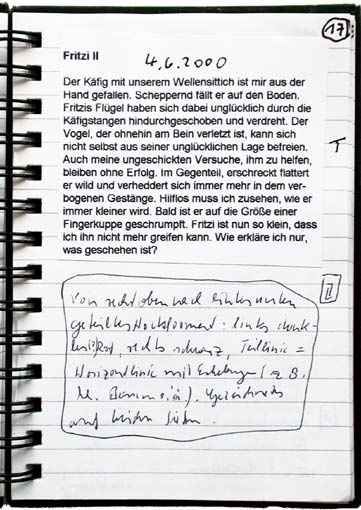 17
Fritzi II 4.6.2000
Der Käfig mit unserem Wellensittich ist mir aus der
Hand gefallen. Scheppernd fällt er auf den Boden.
Fritzis Flügel haben sich dabei unglücklich durch die
Käfigstangen hindurchgeschoben und verdreht. Der
Vogel, der ohnehin am Bein verletzt ist, kann sich
nicht selbst aus seiner unglücklichen Lage befreien.
Auch meine ungeschickten Versuche, ihm zu helfen,
bleiben ohne Erfolg. Im Gegenteil, erschreckt flattert
er wild und verheddert sich immer mehr in dem ver-
bogenen Gestänge. Hilflos muss ich zusehen, wie er
immer kleiner wird. Bald ist er auf die Größe einer
Fingerkuppe geschrumpft. Fritzi ist nun so klein, dass
ich ihn nicht mehr greifen kann. Wie erkläre ich nur,
was geschehen ist?
T
II
Von rechts oben nach links unten
geteiltes Hochformat: links dunk-
rot, rechts schwarz, Teillinie =
Horizontlinie mit Erhebungen (z.B.
auf beiden Seiten.